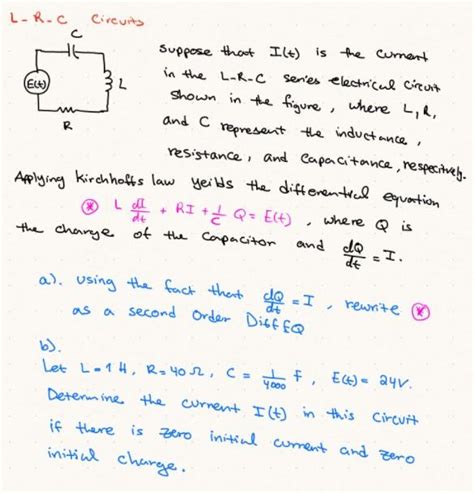 L-R-C Circuits
C
E(t)
L
R
suppose that I(t) is the current
in the L-R-C series electrical circuit
shown in the figure, where L, R,
and C represent the inductance,
resistance, and capacitance, respectively.
Applying Kirchhoffs law yeilds the differential equation
⊛ L dI/dt + RI + 1/C Q = E(t), where Q is
the charge of the capacitor and dQ/dt = I.
a). using the fact that dQ/dt = I, rewrite ⊛
as a second order Diff EQ
b).
Let L = 1 H, R = 40 Ω, C = 1/4000 F, E(t) = 24V.
Determine the current I(t) in this circuit
if there is zero initial current and zero
initial charge.